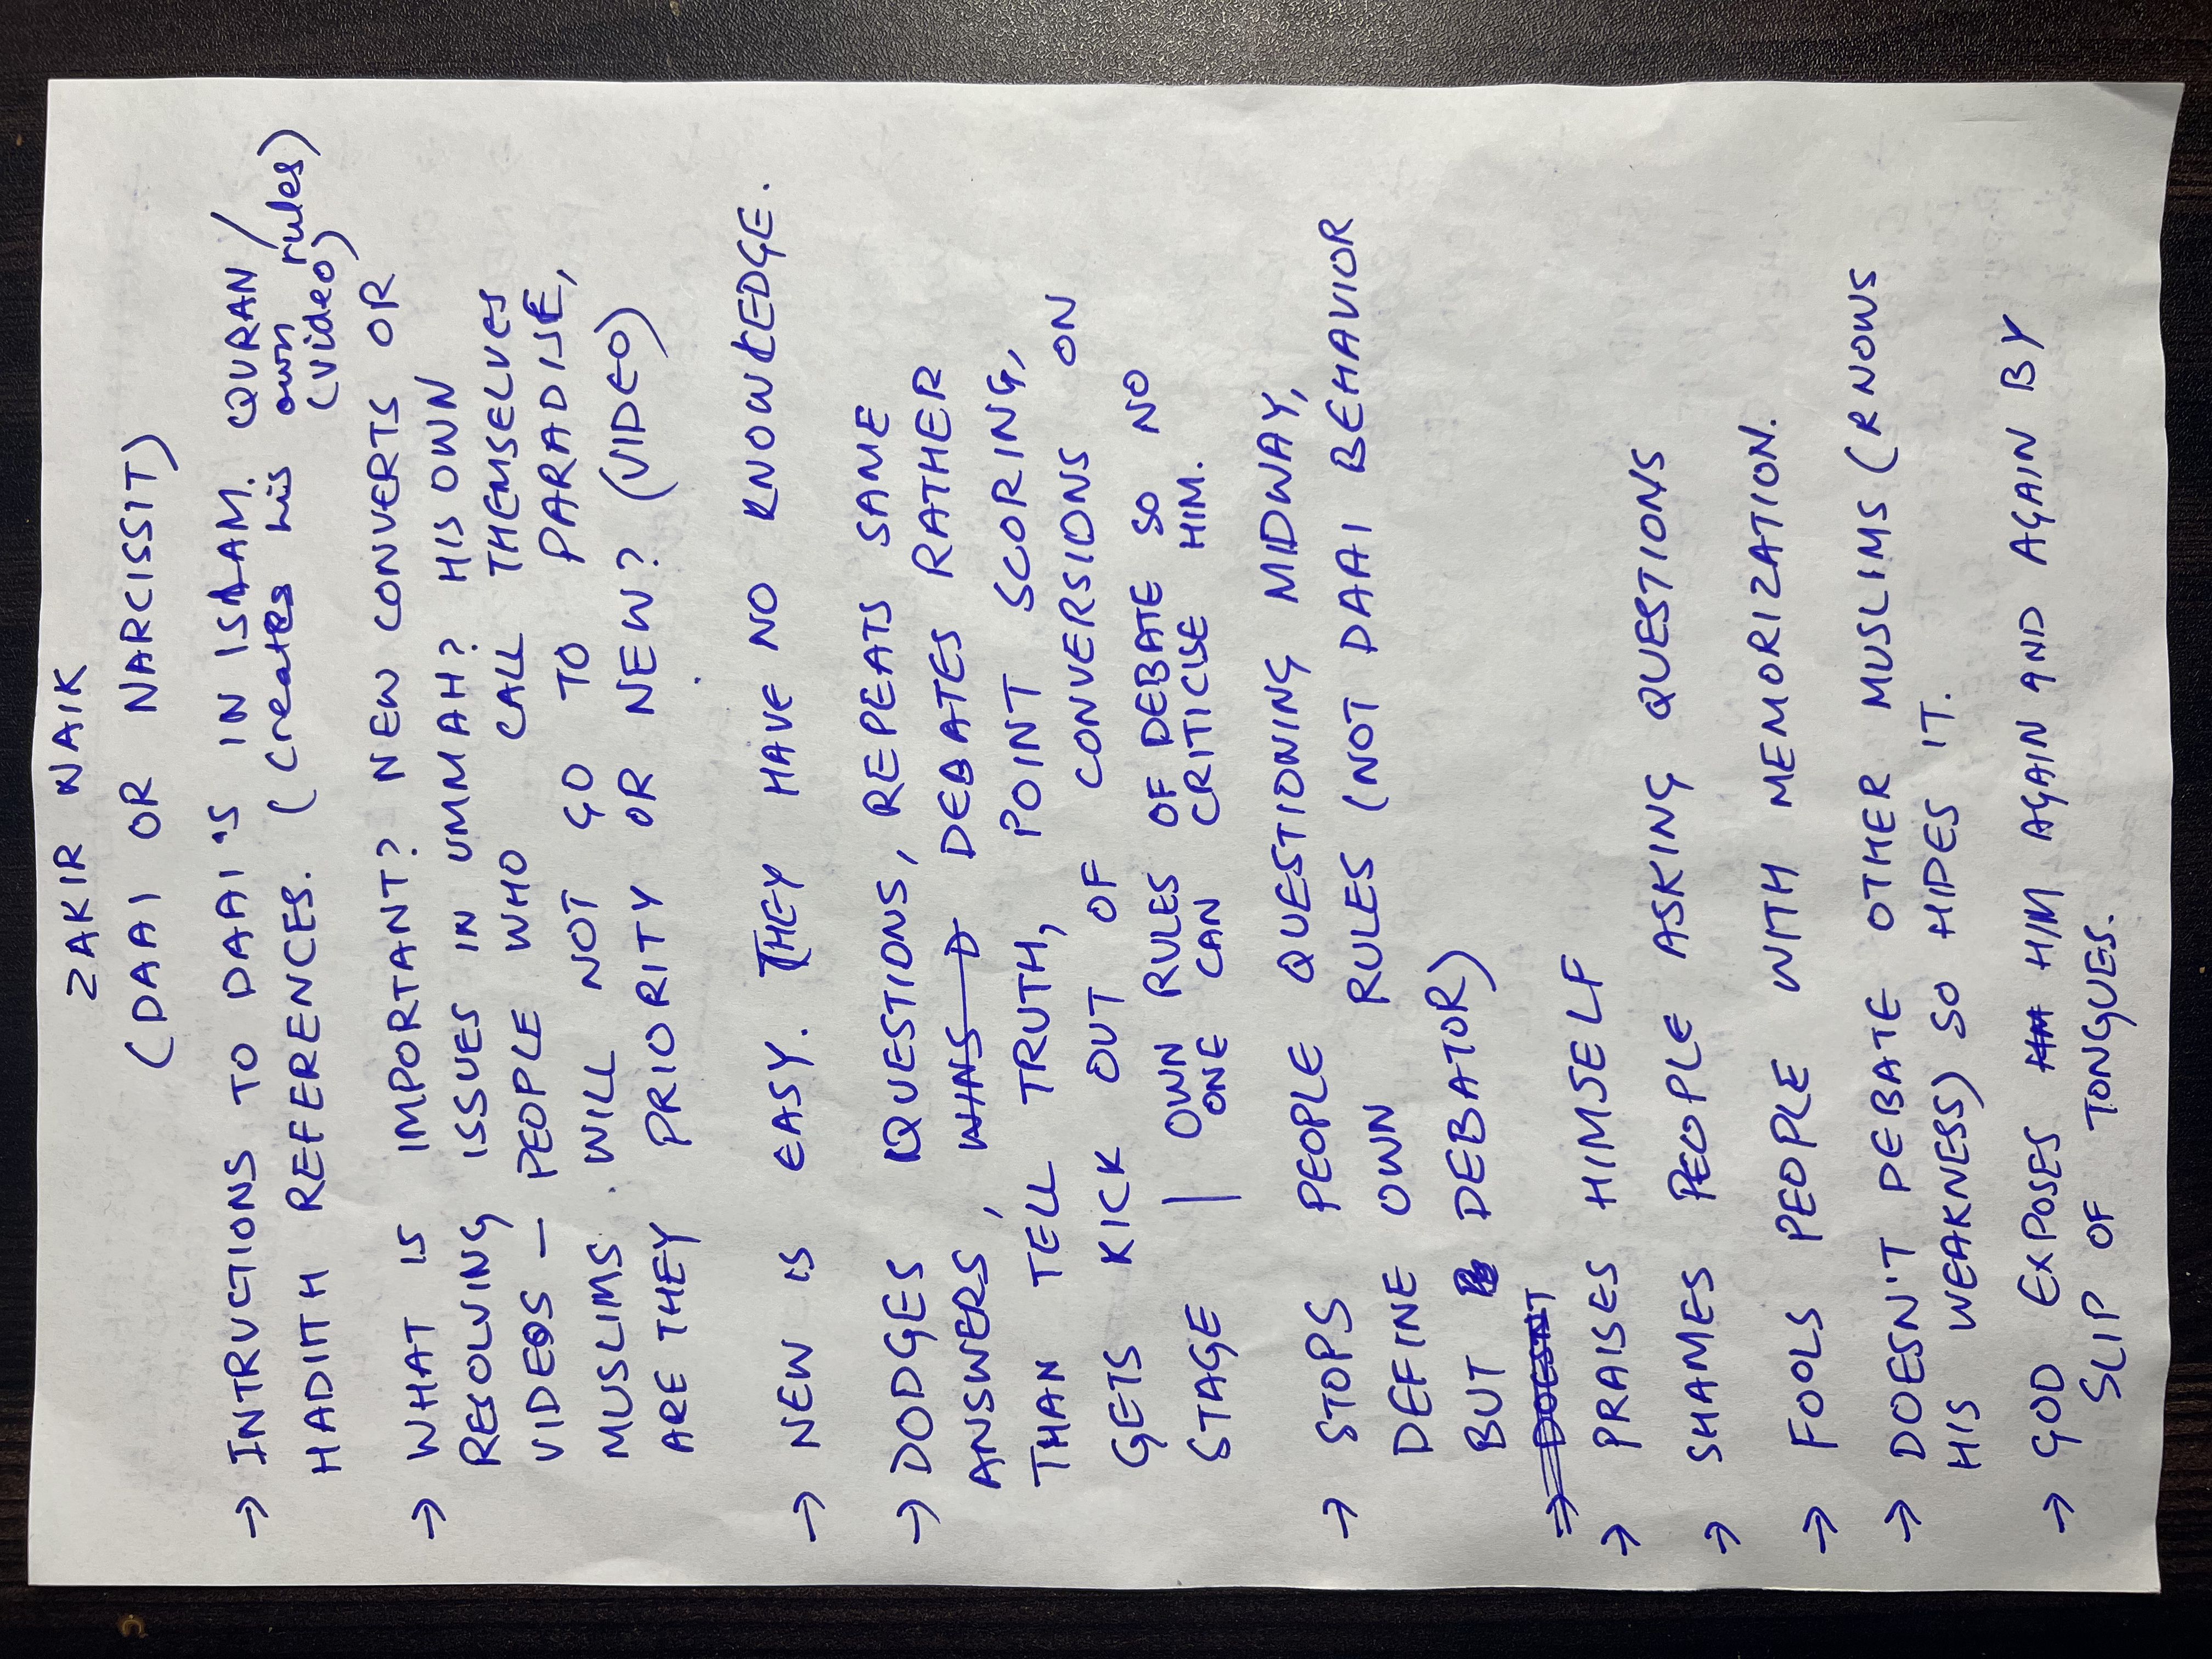 ZAKIR NAIK
(DAAI OR NARCISSIT)
→ INTRUCTIONS TO DAAI'S IN ISLAM. QURAN /
HADITH REFERENCES. (creates his own rules)
(video)
→ WHAT IS IMPORTANT? NEW CONVERTS OR
RESOLVING ISSUES IN UMMAH? HIS OWN
VIDEOS - PEOPLE WHO CALL THEMSELVES
MUSLIMS WILL NOT GO TO PARADISE,
ARE THEY PRIORITY OR NEW? (VIDEO)
→ NEW IS EASY. THEY HAVE NO KNOWLEDGE.
→ DODGES QUESTIONS, REPEATS SAME
ANSWERS, WINS D DEBATES RATHER
THAN TELL TRUTH, POINT SCORING,
GETS KICK OUT OF CONVERSIONS ON
STAGE | OWN RULES OF DEBATE SO NO
ONE CAN CRITICISE HIM.
→ STOPS PEOPLE QUESTIONING MIDWAY,
DEFINE OWN RULES (NOT DAAI BEHAVIOR
BUT DEBATOR)
→ DOESNT
→ PRAISES HIMSELF
→ SHAMES PEOPLE ASKING QUESTIONS
→ FOOLS PEOPLE WITH MEMORIZATION.
→ DOESN'T DEBATE OTHER MUSLIMS (KNOWS
HIS WEAKNESS) SO HIDES IT.
→ GOD EXPOSES HIM AGAIN AND AGAIN BY
SLIP OF TONGUES.